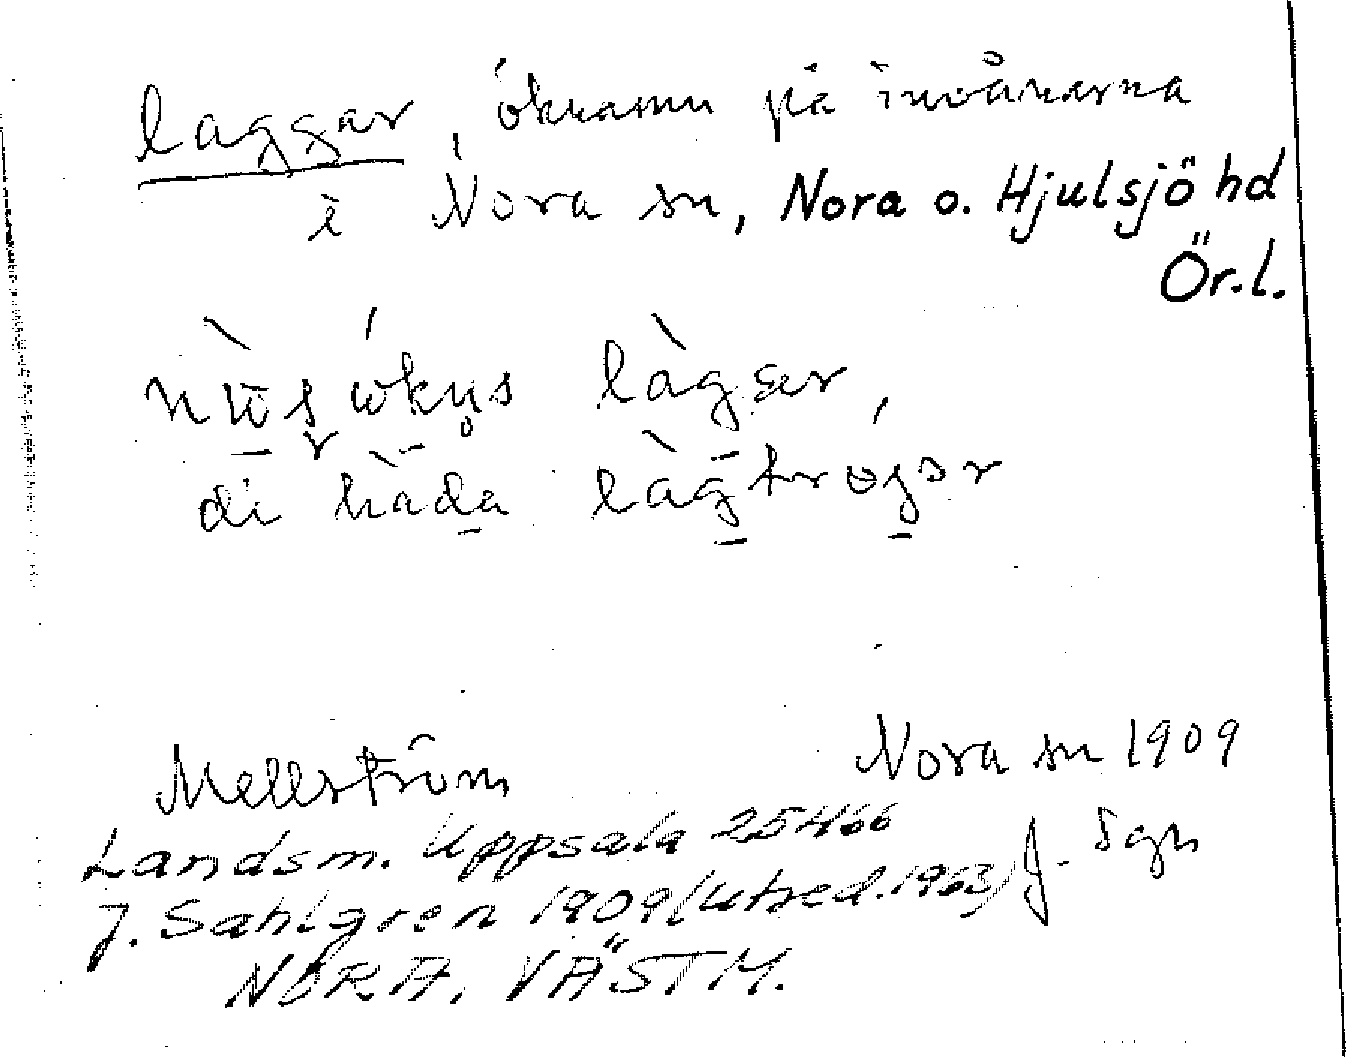 laggar, öknamn på invånarna
i Nora sn, Nora o. Hjulsjö hd
Ör.l.
lagar,
di
Mellström Nora sn 1909
Landsm. Uppsala 25466 J. Sgn
J. Sahlgren 1909 (utred. 1963)
NORA, VÄSTM.